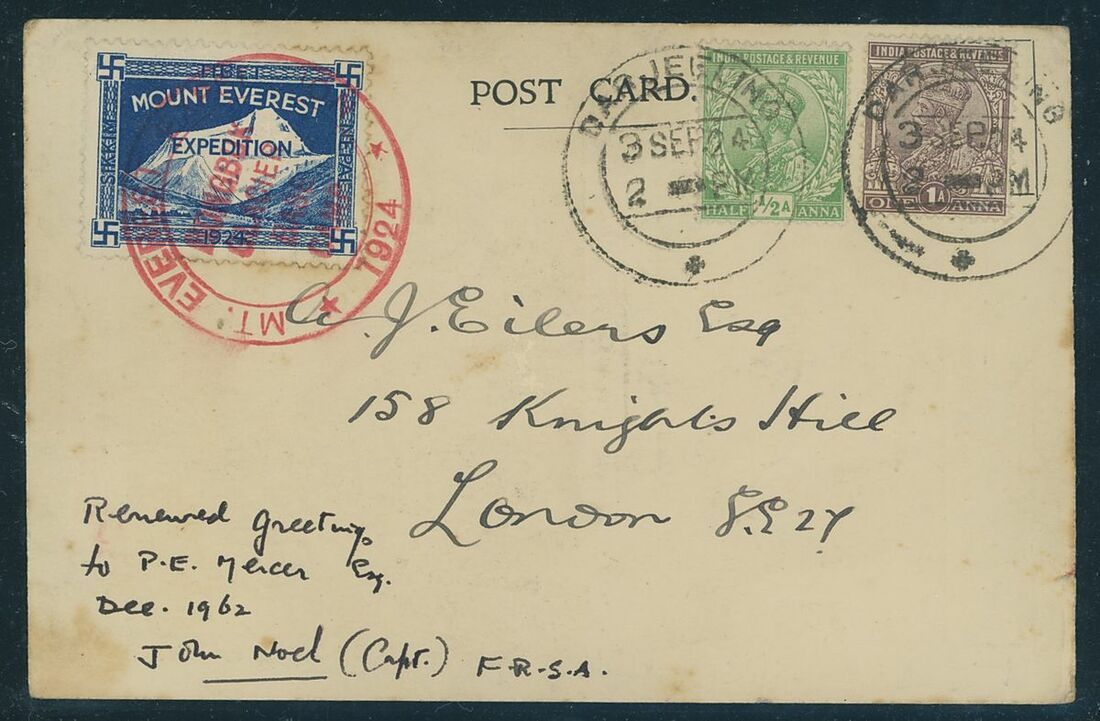 TIBET
MOUNT EVEREST
EXPEDITION
SIKKIM
NEPAL
1924
MT. EVEREST
1924
POST CARD.
INDIA POSTAGE & REVENUE
HALF 1/2 A ANNA
DARJEELING
3 SEP 24
2
INDIA POSTAGE & REVENUE
ONE 1A ANNA
DARJEELING
3 SEP 24
2 PM
A. J. Eilers Esq
158 Knights Hill
London S.E 27
Renewed greetings
to P.E. Mercer Esq.
Dec. 1962
John Noel (Capt.) F.R.S.A.